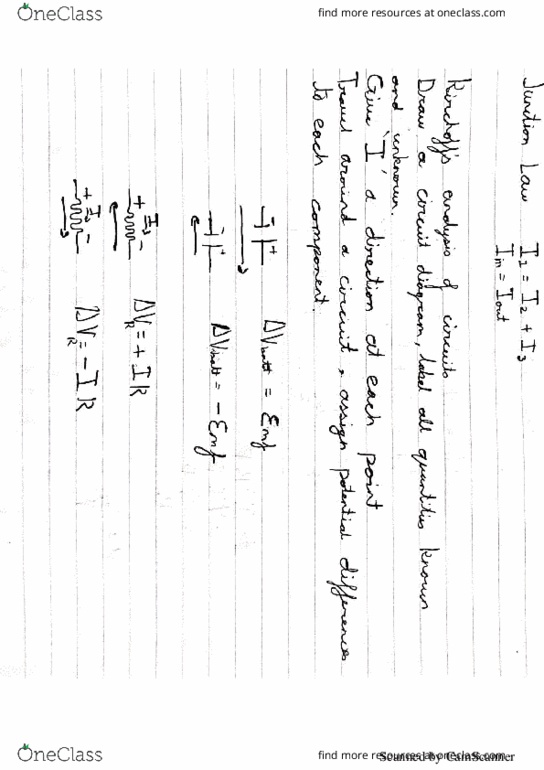 OneClass
find more resources at oneclass.com
Junction Law I2 = I2 + I3
Iin = Iout
Kirchoff's analysis of circuits
Draw a circuit diagram, label all quantities known
and unknown.
Give 'I' a direction at each point
Travel around a circuit, assign potential differences
to each component.
- + ΔVbatt = Emf
- + ΔVbatt = - Emf
+ I - ΔVR = + IR
+ I - ΔVR = - IR
OneClass
find more resources at oneclass.com
Scanned by CamScanner